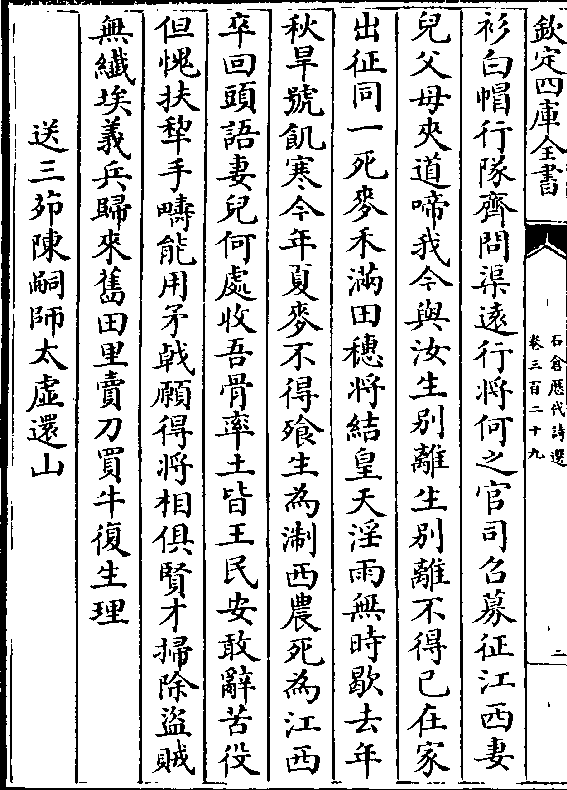 欽定四庫全書
石倉歷代詩選
卷三百二十九
二
衫白帽行隊齊問渠遠行將何之官司召募征江西妻
兒父母夾道啼我今與汝生别離生别離不得已在家
出征同一死麥禾滿田穗將結皇天淫雨無時歇去年
秋旱號飢寒今年夏麥不得飱生為淛西農死為江西
卒回頭語妻兒何處收吾骨率土皆王民安敢辭苦役
但愧扶犂手疇能用矛㦸願得將相俱賢才掃除盜賊
無纖埃義兵歸來舊田里賣刀買牛復生理
送三茆陳嗣師太虛還山